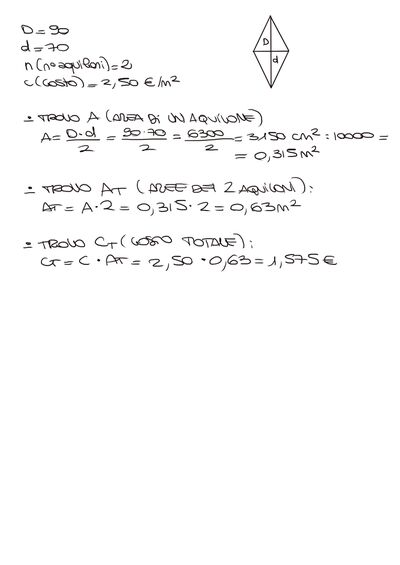 D = 90
d = 70
n (n° aquiloni) = 2
c (costo) = 2,50 €/m²
D
d
• TROVO A (AREA DI UN AQUILONE)
A = D·d/2 = 90·70/2 = 6300/2 = 3150 cm² : 10000 =
= 0,315 m²
• TROVO AT (AREE DEI 2 AQUILONI):
AT = A·2 = 0,315·2 = 0,63 m²
• TROVO CT (COSTO TOTALE):
CT = C · AT = 2,50 · 0,63 = 1,575 €